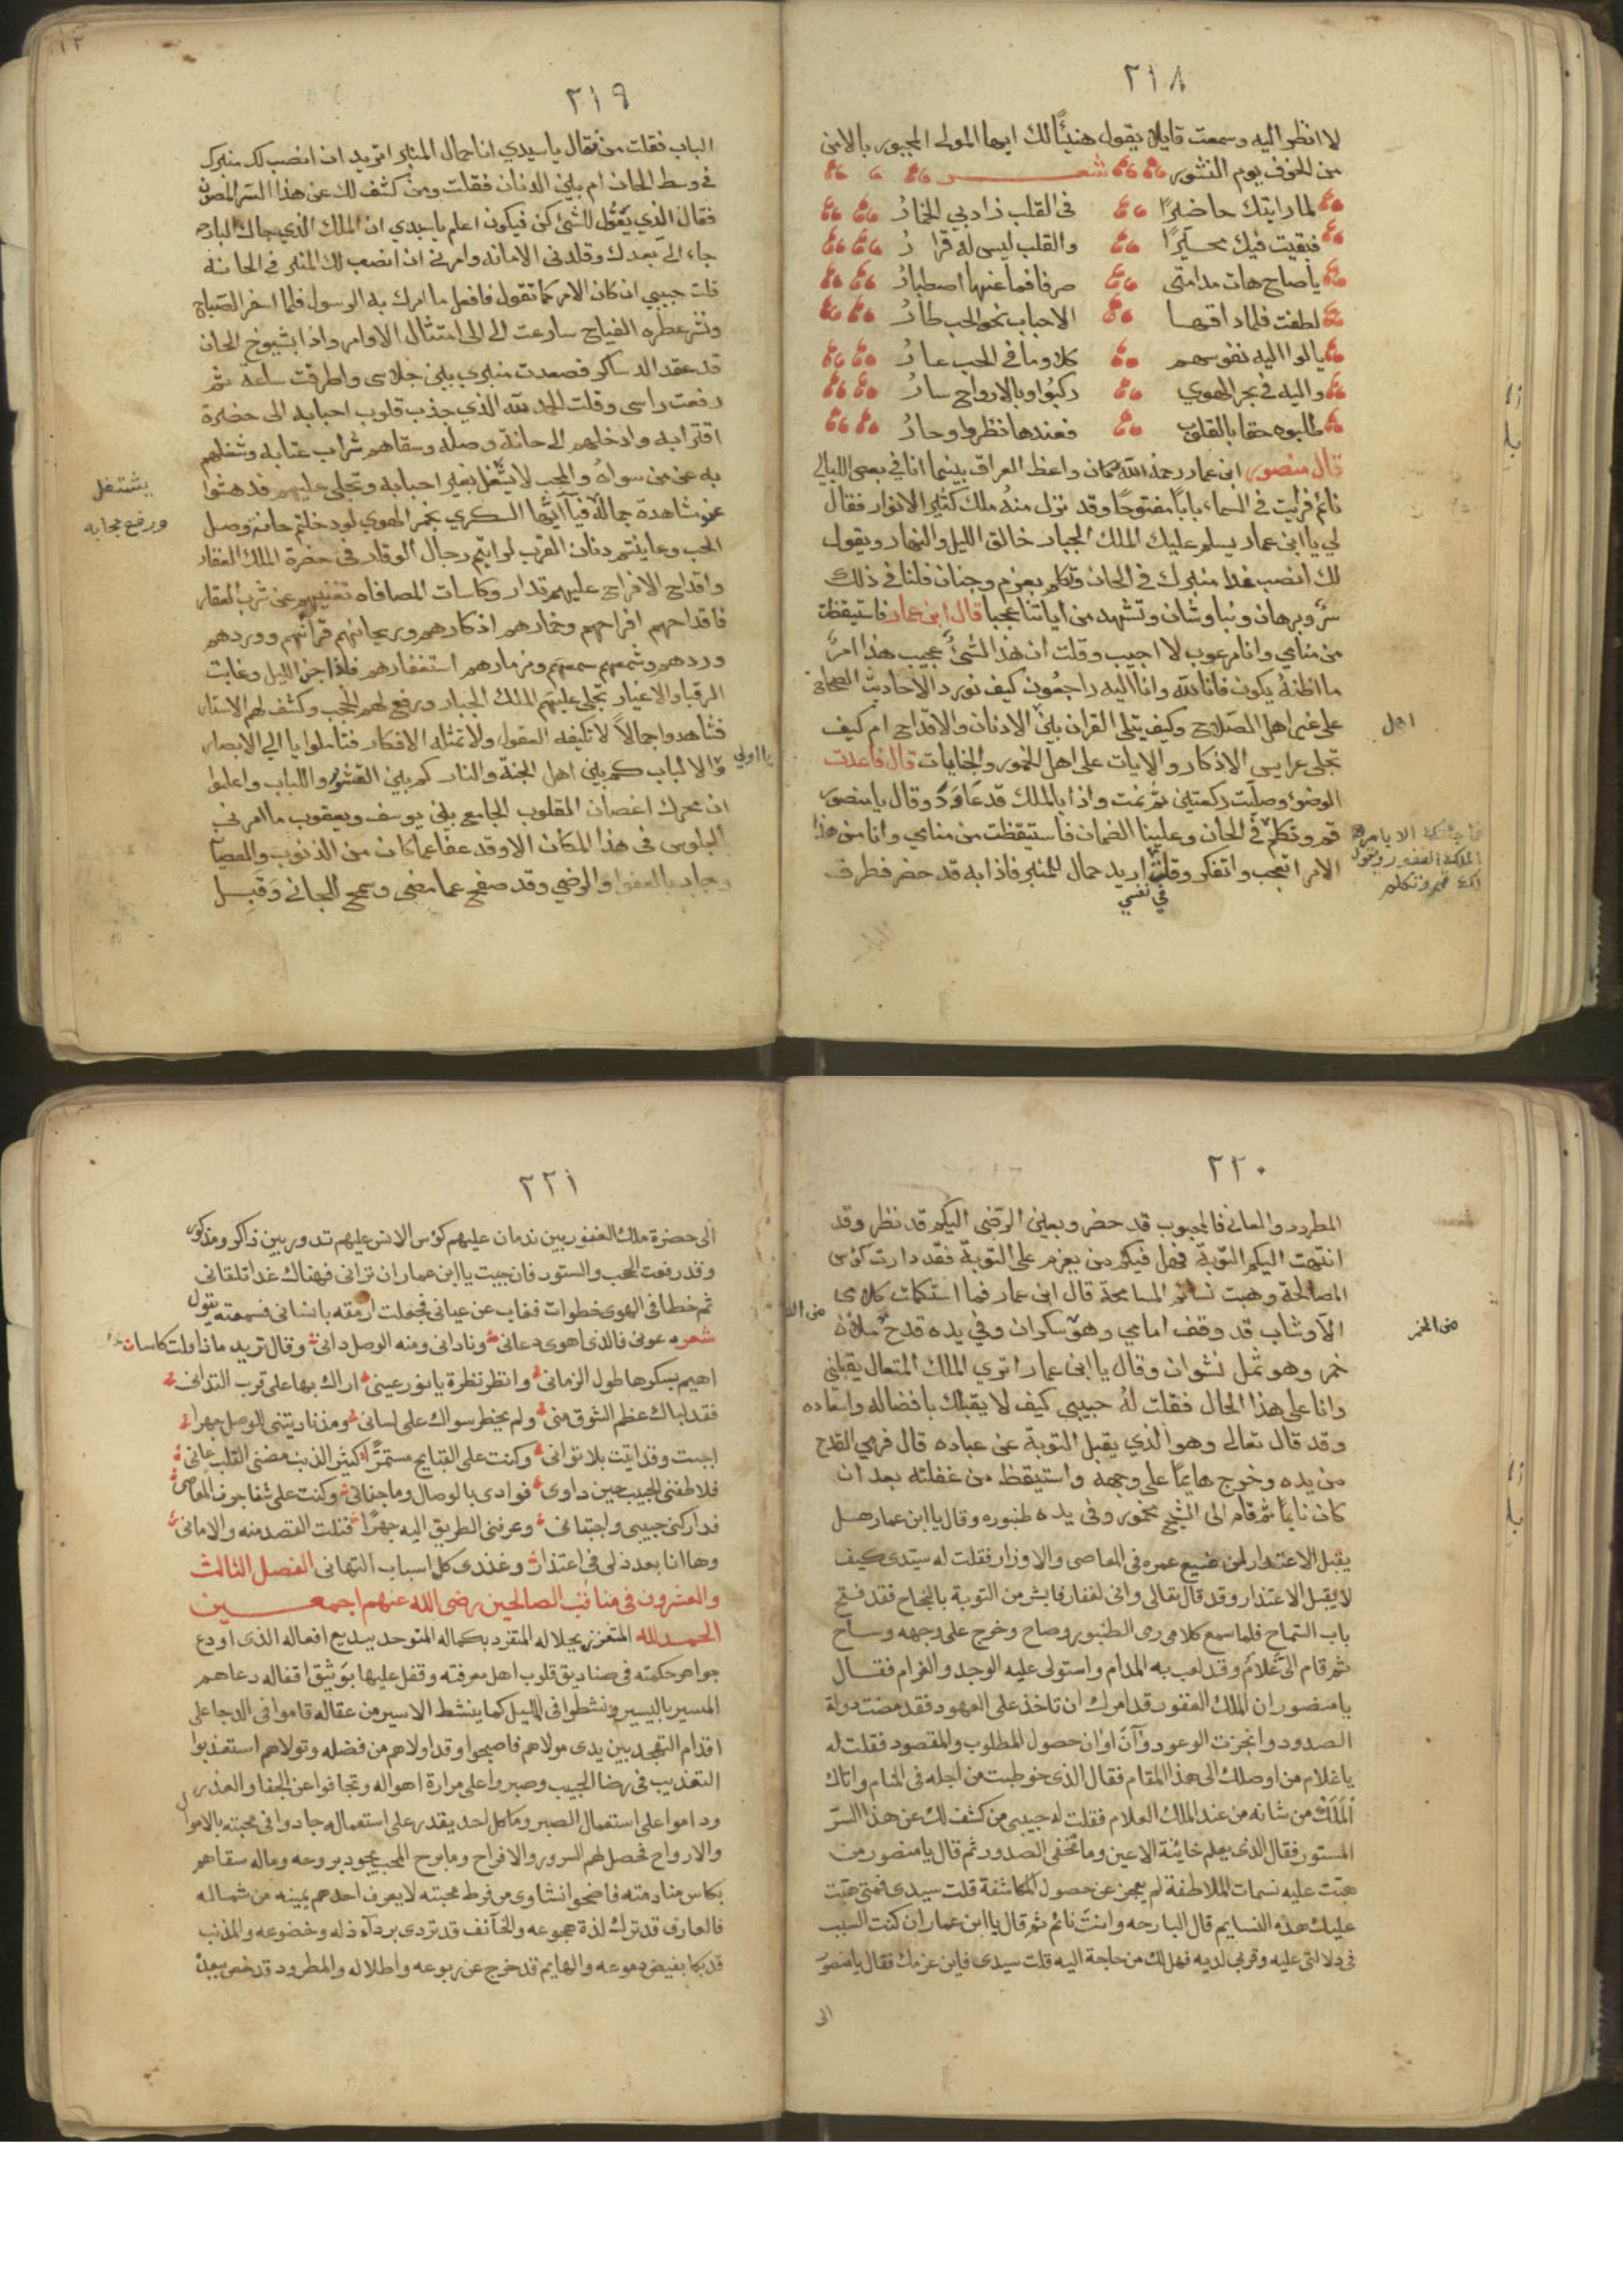 ٢١٨
لا انظر اليه وسمعت قايلا يقول هنيئًا لك ايها المولى المجبور بالامن
من الخوف يوم النشور شعر
لما رايتك حاضرًا في القلب زاد بي الخمارُ
فبقيت فيك محيرًا والقلب ليس له قرارُ
يا صاح هات مدامتي صرفا فما عنها اصطبارُ
لطفت فلما ذاقها الاحباب نحو الحب طارُ
مالوا اليه نفوسهم كلا وما في الحب عارُ
واليه في بحر الهوي ركبُوا وبالارواح سارُ
طلبوه حقا بالقلوب فعندها نظروا وحارُ
قال منصور ابن عمار رحمة الله وكان واعظ العراق بينما انا في بعض الليالي
نائم فرايت في السماء باباً مفتوحًا وقد نزل منهُ ملك كثير الانوار فقال
لي يا ابن عمار يسلم عليك الملك الجبار خالق الليل والنهار ويقول
لك انصب غدا منبرك في الحان وتكلم بعزم وجنان فلنا في ذلك
سرٌ وبرهان ونبا وشان وتشهد من اياتنا عجبا قال ابن عمار فاستيقظت
من منامي وانا مرعوب لا اجيب وقلت ان هذا لشئٌ عجيب هذا امرٌ
ما اظنهُ يكون فانا لله وانا اليه راجعُون كيف نورد الاحاديث الصحاح
على غير اهل الصَلاح وكيف يتلى القران بين الادنان والاقداح ام كيف
تجلى عرايس الاذكار والايات على اهل الخمور والجنايات قال فاعدت
اهل
الوضوء وصليت ركعتين ثم نمت واذا بالملك قد عَاوَدَ وقال يا منصور
قم وتكلم في الحان وعلينا الضمان فاستيقظت من منامي وانا من هذا
الامر اتعجب واتفكر وقلت اريد حمال للمنبر فاذا به قد حضر فطرق
في نفسي
ما جئتك الا بامره
الملك الغفور ويقول
لك قم وتكلم
٢١٩
الباب فقلت من فقال يا سيدي انا حمال المنبر اتريد ان انصب لك منبرك
في وسط الحان ام بين الدنان فقلت ومن كشف لك عن هذا السر المصون
فقال الذي يقول للشئ كن فيكون اعلم يا سيدي ان الملك الذي جاك البارحه
جاء اليَّ بعدك وقلدني الامانه وامرني ان انصب لك المنبر في الحانة
قلت حبيبي ان كان الامر كما تقول فافعل ما امرك به الرسول فلما اسفر الصَباح
ونشر عطره الفياح سارعت الى امتثال الاوامر واذا بشيوخ الحان
قد عقد الدساكر فصعدت منبري بين جلاسي واطرقت ساعه ثم
رفعت راسي وقلت الحمد لله الذي جذب قلوب احبابه الى حضرة
اقترابه وادخلهم الى حانة وصله وسقاهم شراب عتابه وشغلهم
به عن من سواهُ والمحب لا يشغل بغير احبابه وتجلى عليهم فدهشوا
يشتغل
عن مشاهدة جماله فيا ايُّها السكري بخمر الهوي لو دخلتم حانة وصل
ورفع حجابه
الحب وعاينتم دنان القرب لرايتم رجال الوقار في حضرة الملك الغفار
واقداح الافراح عليهم تدار وكاسات المصافاه تغنيهم عن شرب العقار
فاقداحهم افراحهم وخمارهم اذكارهم وريحانهم قرانهم ووردهم
وردهم وشمعهم سمعهم ومزمارهم استغفارهم فاذا جن الليل وغابت
الرقبا والاغيار تجلى عليهم الملك الجبار ورفع لهم الحجب وكشف لهم الاستار
فشاهدوا جمالاً لا تكيفه العقول ولا تمثله الافكار فتاملوا يا الي الابصار
يا اولي
والالباب كم بين اهل الجنة والنار كم بين القشور واللباب واعلموا
ان محرك اغصان القلوب الجامع بين يوسف ويعقوب ما امرني
بالجلوس في هذا المكان الا وقد عفا عما كان من الذنوب والعصيان
وجاد بالعفو والرضي وقد صفح عما مضي وسمح للجاني وَقَبِل
٢٢٠
المطرود والعاني فالمحبوب قد حضر وبعين الرضى اليكم قد نظر وقد
انتهت اليكم التوبة فهل فيكم من يعزم على التوبة فقد دارت كؤس
المصالحة وهبت نسائم المسامحة قال ابن عمار فما استكملت كلامي
الا وشاب قد وقف امامي وهو سكران وفي يده قدح ملآن
من الخمر
خمر وهو ثمل نشوان وقال يا ابن عمار اتري الملك المتعال يقبلني
وانا على هذا الحال فقلت لهُ حبيبي كيف لا يقبلك بافضاله واسعاده
وقد قال تعالى وهو الذي يقبل التوبة عن عباده قال فرمي القدح
من يده وخرج هايمًا على وجهه واستيقظ من غفلته بعد ان
كان نايمًا ثم قام الى الشيخ مخمور وفي يده طنبوره وقال يا ابن عمار هل
يقبل الاعتذار لمن ضيع عمره في المعاصى والاوزار فقلت له سيدى كيف
لا يقبل الاعتذار وقد قال تعالى وانى لغفار فابشر من التوبة بالنجاح فقد فتح
باب السماح فلما سمع كلامى رمى الطنبور وصاح وخرج على وجهه وساح
ثم قام اليَّ غلام وقد لعب به المدام واستولى عليه الوجد والغرام فقال
يا منصور ان الملك الغفور قد امرك ان تاخذ على العهود فقد مضت دولة
الصدود وانجزت الوعود وآن اوان حصول المطلوب والمقصود فقلت له
يا غلام من اوصلك الى هذا المقام فقال الذى خوطبت من اجله فى المنام واتاك
المَلَك من شانه من عند الملك العلام فقلت له حبيبى من كشف لك عن هذا السرّ
المستور فقال الذى يعلم خائنة الاعين وما تخفى الصدور ثم قال يا منصور من
هبّت عليه نسمات الملاطفة لم يعجز عن حصول المكاشفة قلت سيدى فمتى هبّت
عليك هذه النسايم قال البارحه وانت نائم ثم قال يا ابن عمار ان كنت السبب
فى دلالتى عليه وقربى لديه فهل لك من حاجة اليه قلت سيدى فاين عزمك فقال يا منصور
الى
٢٢١
الى حضرة ملك الغفور بين ندمان عليهم كؤس الانس عليهم تدور بين ذاكر ومذكور
وقد رفعت الحجب والستور فان جيت يا ابن عمار ان ترانى فهناك غدا تلقانى
ثم خطا فى الهوى خطوات فغاب عن عيانى فجعلت ارمقه بانسانى فسمعته يقول
شعر دعونى فالذى اهوى دعانى ونادانى ومنه الوصل دانى وقال تريد مانا ولت كاسات
اهيم بسكرها طول الزمانى وانظر نظرة يا نور عينى اراك بها على قرب التدانى
فقد اباك عظم الشوق منى ولم يخطر سواك على لسانى ومذ ناديتنى للوصل جهرا
اجبت وقد اتيت بلا توانى وكنت على القبايح مستمرًّا كثير الذنب مضنى القلب عانى
فلاطفنى الحبيب حين داوى فوادى بالوصال وما جفانى وكنت على شفا جرف المعاصى
فداركنى حبيبى واجتبانى وعرفنى الطريق اليه جهرًا فنلت القصد منه والامانى
وها انا بعد ذلى فى اعتذار وعندى كل اسباب التهانى الفصل الثالث
والعشرون فى مناقب الصالحين رضى الله عنهم اجمعين
الحمد لله المتعزز بجلاله المتفرد بكماله المتوحد ببديع افعاله الذى اودع
جواهر حكمته فى صناديق قلوب اهل معرفته وقفل عليها بوَثيق اقفاله دعاهم
المسير باليسير ونشطوا فى الليل كما ينشط الاسير من عقاله قاموا فى الدجا على
اقدام التهجد بين يدى مولاهم فاصبحوا وقد اولاهم من فضله وتولاهم استعذبوا
التعذيب فى رضا الحبيب وصبروا على مرارة اهواله وتجافوا عن الجفا والعذر
وداموا على استعمال الصبر وما كل احد يقدر على استعماله جادوا فى محبته بالاموال
والارواح فحصل لهم السرور والافراح وما برح المحب يجود بروعه وماله سقاهم
بكاس منادمته فاضحوا نشاوى من فرط محبته لا يعرف احدهم يمينه من شماله
فالعارف قد ترك لذة هجوعه والخآئف قد تردى بردآء ذله وخضوعه والمذنب
قد بكا بفيض دموعه والهايم قد خرج عن ربوعه واطلاله والمطرود قد خص ببعده